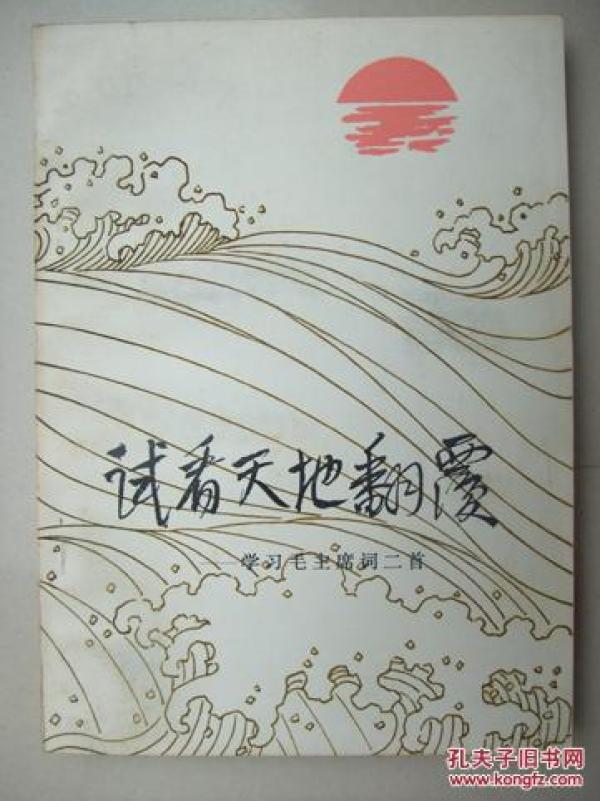 试看天地翻覆
——学习毛主席词二首
孔夫子旧书网
www.kongfz.com